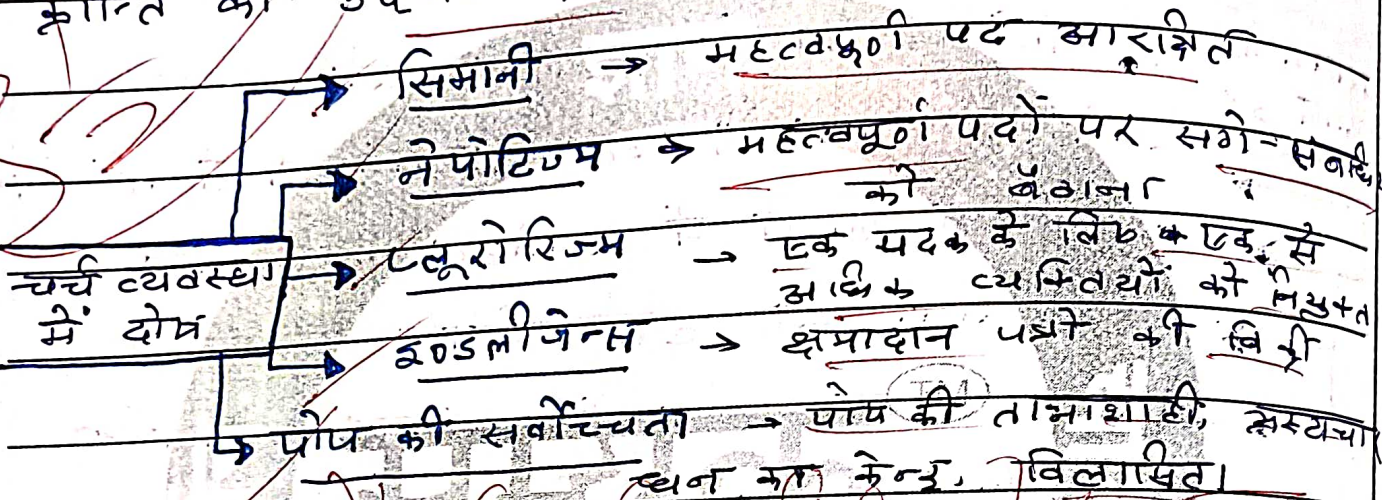 क्रान्ति का
सिमानी → महत्वपूर्ण पद आरक्षित
नेपोटिज्म → महत्वपूर्ण पदों पर सगे-संबंधि
को बैठाना
चर्च व्यवस्था
में दोष
प्लूरोरिज्म → एक पदक के लिए एक से
अधिक व्यक्तियों को नियुक्त
इण्डलीजेन्स → क्षमादान पत्रों की बिक्री
पोप की सर्वोच्चता → पोप की तानाशाही, भ्रस्टाचा
धन का केन्द्र, विलासिता